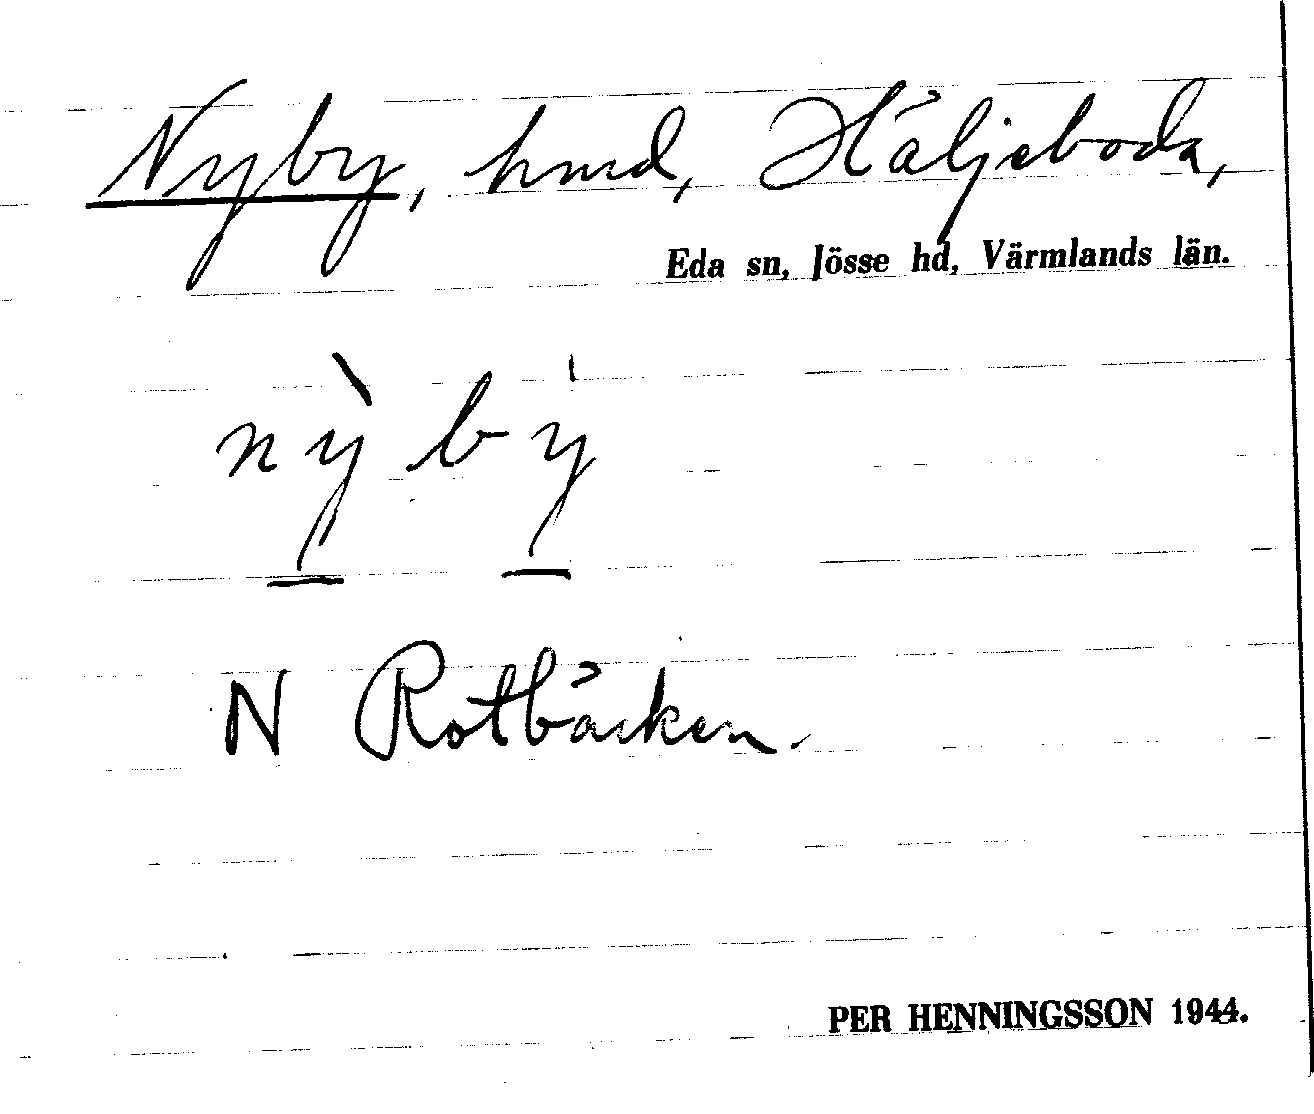 Nyby, hmd, Häljeboda,
Eda sn, Jösse hd, Värmlands län.
nỳbý
N Rotbäcken.
PER HENNINGSSON 1944.